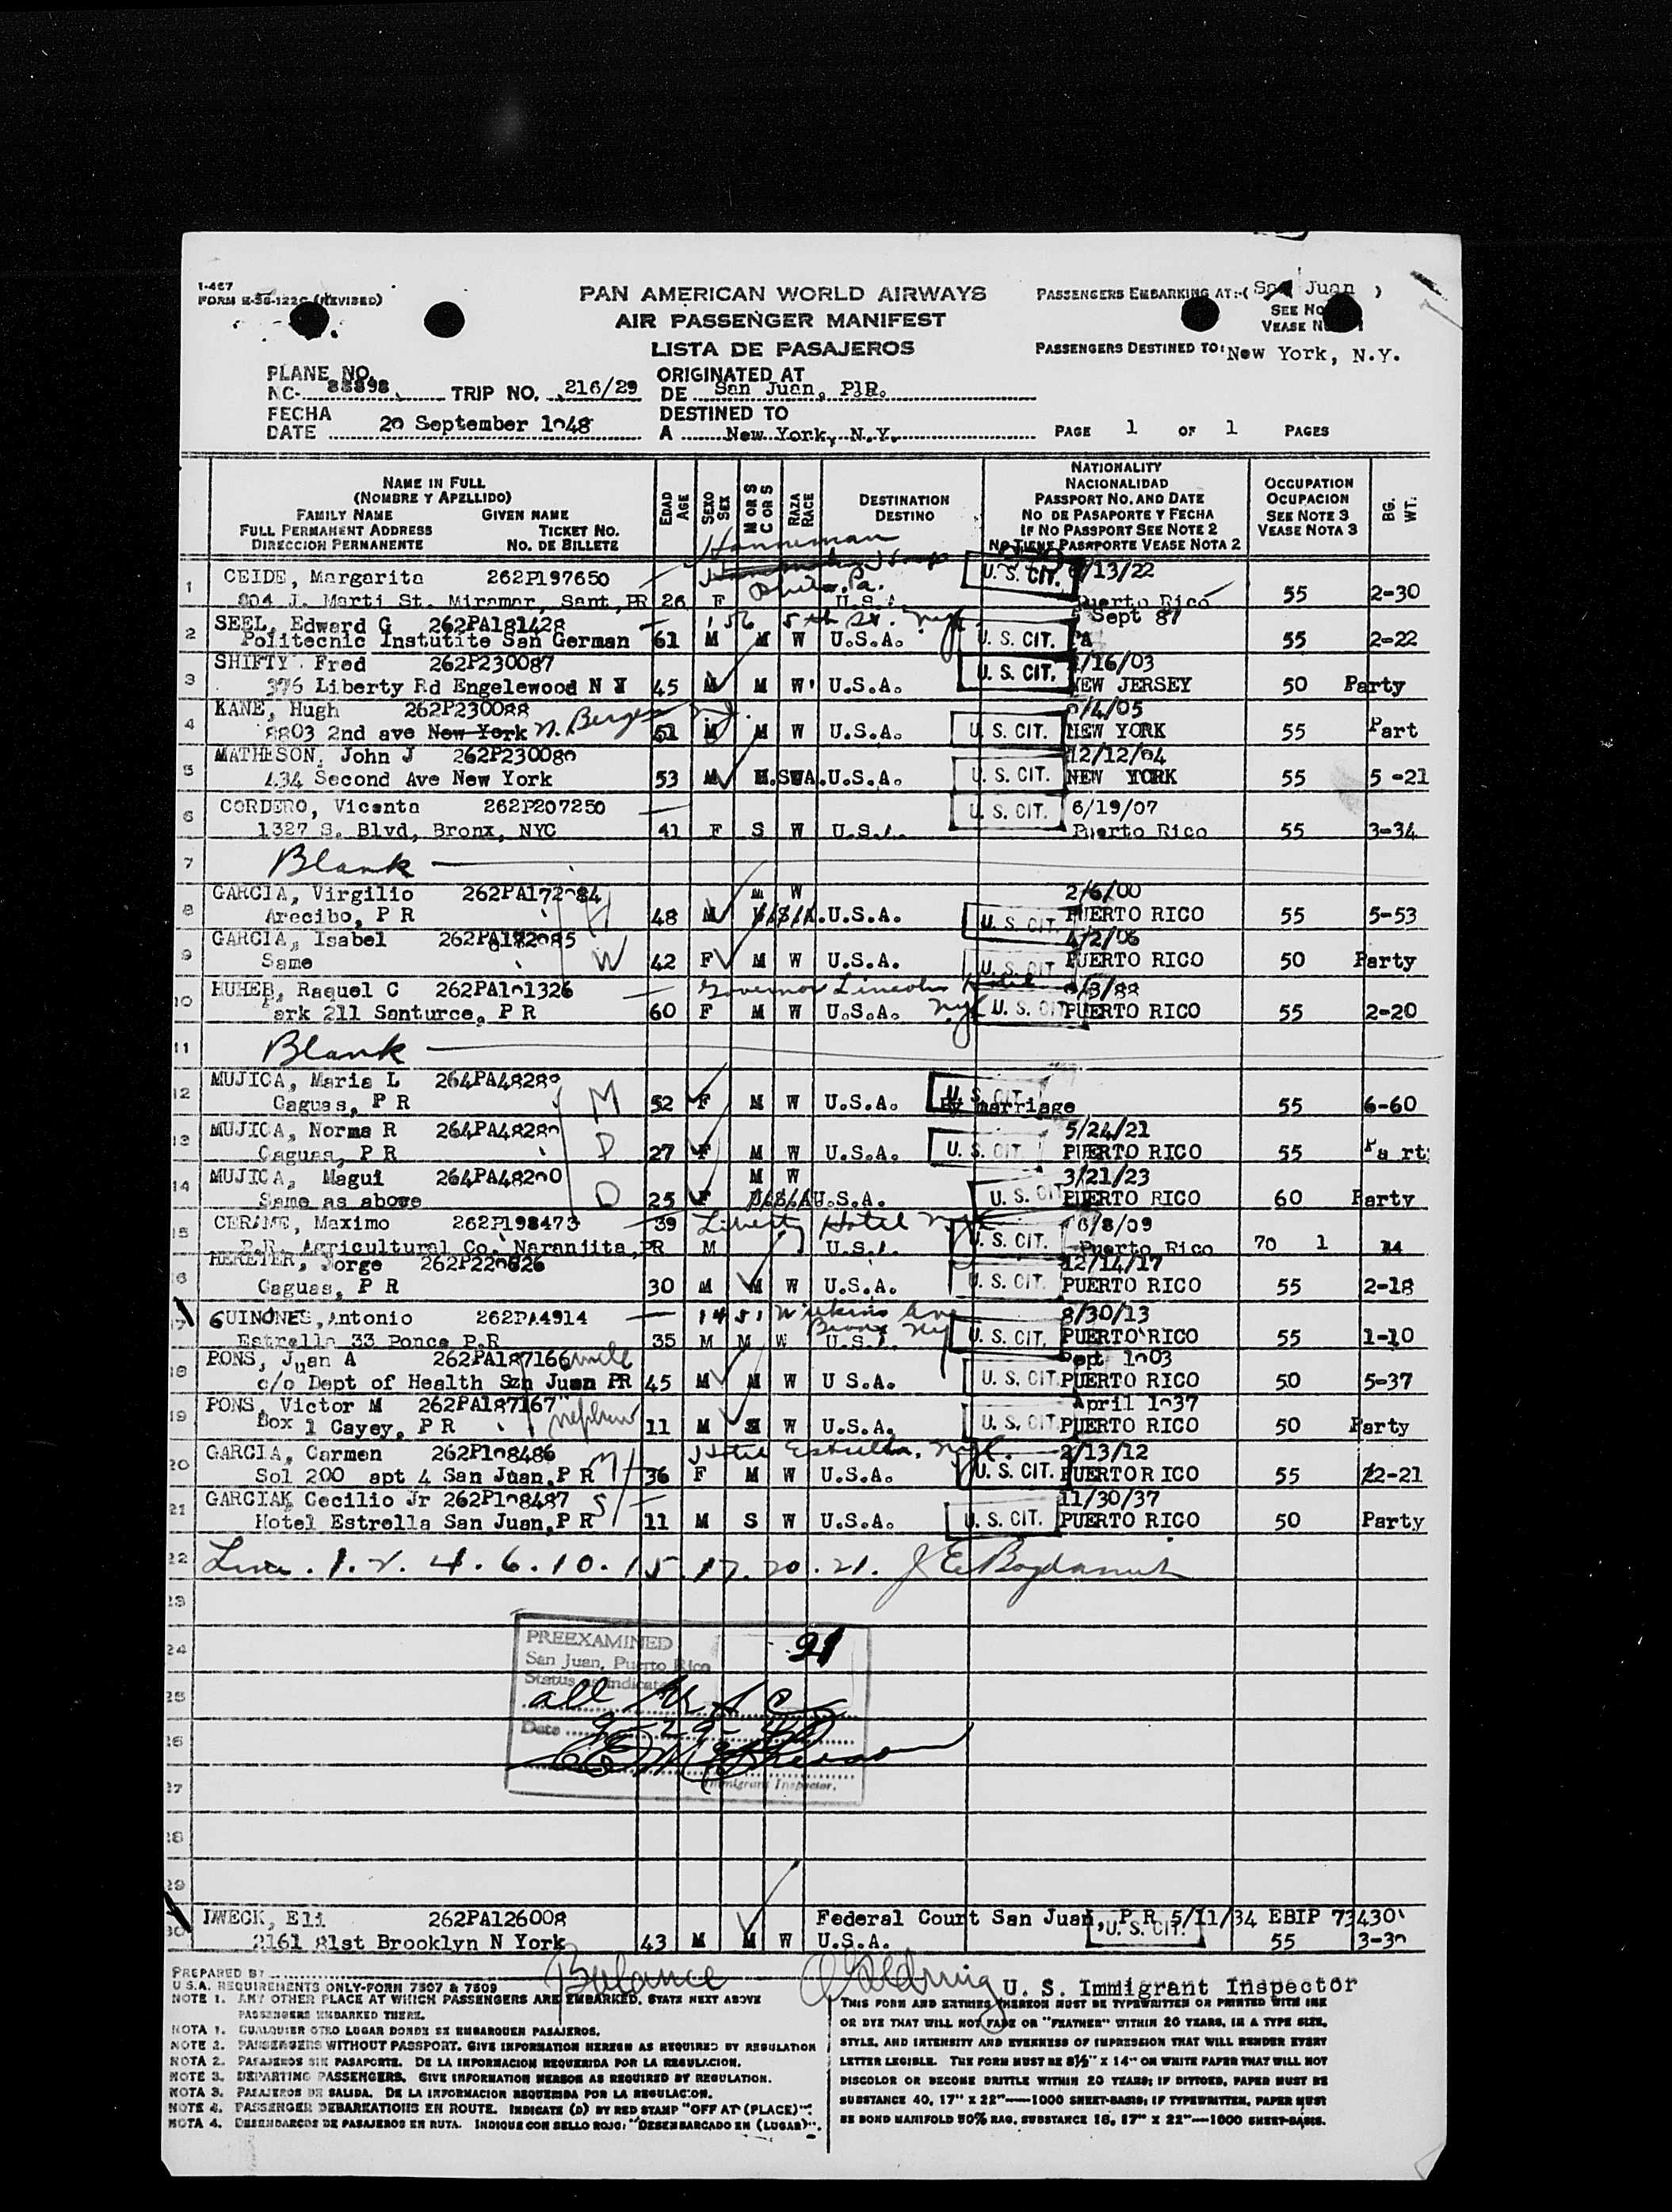 1-467
FORM E-36-122C (REVISED)
PAN AMERICAN WORLD AIRWAYS
AIR PASSENGER MANIFEST
LISTA DE PASAJEROS
PASSENGERS EMBARKING AT:-( San Juan )
SEE NO
VEASE N
PASSENGERS DESTINED TO: New York, N.Y.
PLANE NO.
NC- 88898 TRIP NO. 216/29
ORIGINATED AT
DE San Juan, P1R.
FECHA
DATE 29 September 1948
DESTINED TO
A New York, N.Y.
PAGE 1 OF 1 PAGES
NAME IN FULL
(NOMBRE Y APELLIDO)
FAMILY NAME GIVEN NAME
FULL PERMANENT ADDRESS TICKET NO.
DIRECCION PERMANENTE NO. DE BILLETE
EDAD AGE
SEXO SEX
M OR S C OR S
RAZA RACE
DESTINATION
DESTINO
NATIONALITY
NACIONALIDAD
PASSPORT NO. AND DATE
NO DE PASAPORTE Y FECHA
IF NO PASSPORT SEE NOTE 2
NO TIENE PASAPORTE VEASE NOTA 2
OCCUPATION
OCUPACION
SEE NOTE 3
VEASE NOTA 3
BG. WT.
Hanneman
1 CEIDE, Margarita 262P197650 U. S. CIT. /13/22
804 J. Marti St. Miramar, Sant, PR 26 F Phila. Pa. U.S.A. Puerto Rico 55 2-30
2 SEEL, Edward G 262PA181428 156 5th St. NYC Sept 87
Politecnic Instutite San German 61 M M W U.S.A. U. S. CIT. PA 55 2-22
3 SHIFTY Fred 262P230087 U. S. CIT. /16/03
376 Liberty Rd Engelewood N Y 45 M M W U.S.A. NEW JERSEY 50 Party
4 KANE, Hugh 262P230088 /4/05
8803 2nd ave New York N. Bergen NJ. 51 M M W U.S.A. U. S. CIT. NEW YORK 55 Part
5 MATHESON, John J 262P230089 12/12/04
434 Second Ave New York 53 M U.S.A. U. S. CIT. NEW YORK 55 5-21
6 CORDERO, Vicenta 262P207250 U. S. CIT. 6/19/07
1327 S. Blvd, Bronx, NYC 41 F S W U.S.A. Puerto Rico 55 3-34
7 Blank
8 GARCIA, Virgilio 262PA172984 H M W 2/6/00
Arecibo, P R 48 M U.S.A. U. S. CIT. PUERTO RICO 55 5-53
9 GARCIA, Isabel W 4/2/06
Same 42 F M W U.S.A. U. S. CIT PUERTO RICO 50 Party
10 Raquel C 262PA191326 Governor Lincoln Hotel NYC /3/88
Park 211 Santurce, P R 60 F M W U.S.A. U. S. CIT PUERTO RICO 55 2-20
11 Blank
12 MUJICA, Maria L 264PA48289 M U. S. CIT.
Caguas, P R 52 F M W U.S.A. By marriage 55 6-60
13 MUJICA, Norma R 264PA48289 D 5/24/21
Caguas, P R 27 F M W U.S.A. U. S. CIT. PUERTO RICO 55 Part
14 MUJICA, Magui 264PA48290 D M W 3/21/23
Same as above 25 F U.S.A. U. S. CIT PUERTO RICO 60 Party
15 CERAME, Maximo 262P198473 39 Liberty Hotel NYC 6/8/09
P.R. Agricultural Co. Naranjita, PR M U.S.A. U. S. CIT. Puerto Rico 70 1 14
16 HERETER, Jorge 262P220626 12/14/17
Caguas, P R 30 M M W U.S.A. U. S. CIT. PUERTO RICO 55 2-18
17 GUINONES, Antonio 262PA4914 1451 Wilkins Ave Bronx NY 8/30/13
Estrella 33 Ponce P.R 35 M M W U.S.A. U. S. CIT. PUERTO RICO 55 1-10
18 PONS, Juan A 262PA187166 uncle Sept 1903
c/o Dept of Health San Juan PR 45 M M W U S.A. U. S. CIT. PUERTO RICO 50 5-37
19 PONS, Victor M 262PA187167 nephew April 1937
Box 1 Cayey, P R 11 M S W U.S.A. U. S. CIT PUERTO RICO 50 Party
20 GARCIA, Carmen 262P198486 M Hotel Estrella, NYC. 2/13/12
Sol 200 apt 4 San Juan, P R 36 F M W U.S.A. U. S. CIT. PUERTOR ICO 55 22-21
21 GARCIAK Cecilio Jr 262P198487 S 11/30/37
Hotel Estrella San Juan, P R 11 M S W U.S.A. U. S. CIT. PUERTO RICO 50 Party
22 Line. 1. 2. 4. 6. 10. 15. 17. 20. 21.
23
24
25
26
27
28
29
PREEXAMINED
San Juan, Puerto Rico
Status as indicated
all
Date
Immigrant Inspector.
30 DWECK, Eli 262PA126008 Federal Court San Juan, P R 5/11/34 EBIP 73430
2161 81st Brooklyn N York 43 M M W U.S.A. U. S. CIT. 55 3-30
PREPARED BY Balance U. S. Immigrant Inspector
U.S.A. REQUIREMENTS ONLY-FORM 7507 & 7509
NOTE 1. ANY OTHER PLACE AT WHICH PASSENGERS ARE EMBARKED, STATE NEXT ABOVE
PASSENGERS EMBARKED THERE.
NOTA 1. CUALQUIER OTRO LUGAR DONDE SE EMBARQUEN PASAJEROS.
NOTE 2. PASSENGERS WITHOUT PASSPORT. GIVE INFORMATION HEREON AS REQUIRED BY REGULATION
NOTA 2. PASAJEROS SIN PASAPORTE. DE LA INFORMACION REQUERIDA POR LA REGULACION.
NOTE 3. DEPARTING PASSENGERS. GIVE INFORMATION HEREON AS REQUIRED BY REGULATION.
NOTA 3. PASAJEROS DE SALIDA. DE LA INFORMACION REQUERIDA POR LA REGULACION.
NOTE 4. PASSENGER DEBARKATIONS EN ROUTE. INDICATE (D) BY RED STAMP "OFF AT (PLACE)".
NOTA 4. DESEMBARCOS DE PASAJEROS EN RUTA. INDIQUE CON SELLO ROJO: "DESEMBARCADO EN (LUGAR)".
THIS FORM AND ENTRIES THEREON MUST BE TYPEWRITTEN OR PRINTED WITH INK
OR DYE THAT WILL NOT FADE OR "FEATHER" WITHIN 20 YEARS, IN A TYPE SIZE,
STYLE, AND INTENSITY AND EVENNESS OF IMPRESSION THAT WILL RENDER EVERY
LETTER LEGIBLE. THE FORM MUST BE 8½" X 14" ON WHITE PAPER THAT WILL NOT
DISCOLOR OR BECOME BRITTLE WITHIN 20 YEARS; IF DITTOED, PAPER MUST BE
SUBSTANCE 40, 17" X 22"—1000 SHEET-BASIS; IF TYPEWRITTEN, PAPER MUST
BE BOND MANIFOLD 50% RAG, SUBSTANCE 16, 17" X 22"—1000 SHEET-BASIS.